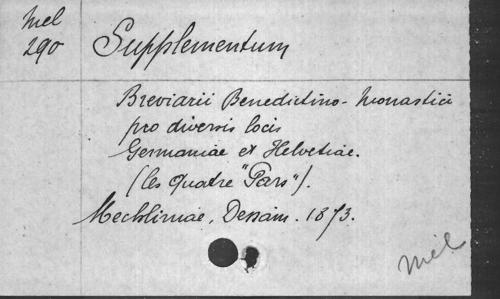 Mel
290
Supplementum
Breviarii Benedictino-Monastici
pro diversis locis
Germaniae et Helvetiae.
(les quatre "Pars").
Mechliniae, Dessain. 1873.
Mel